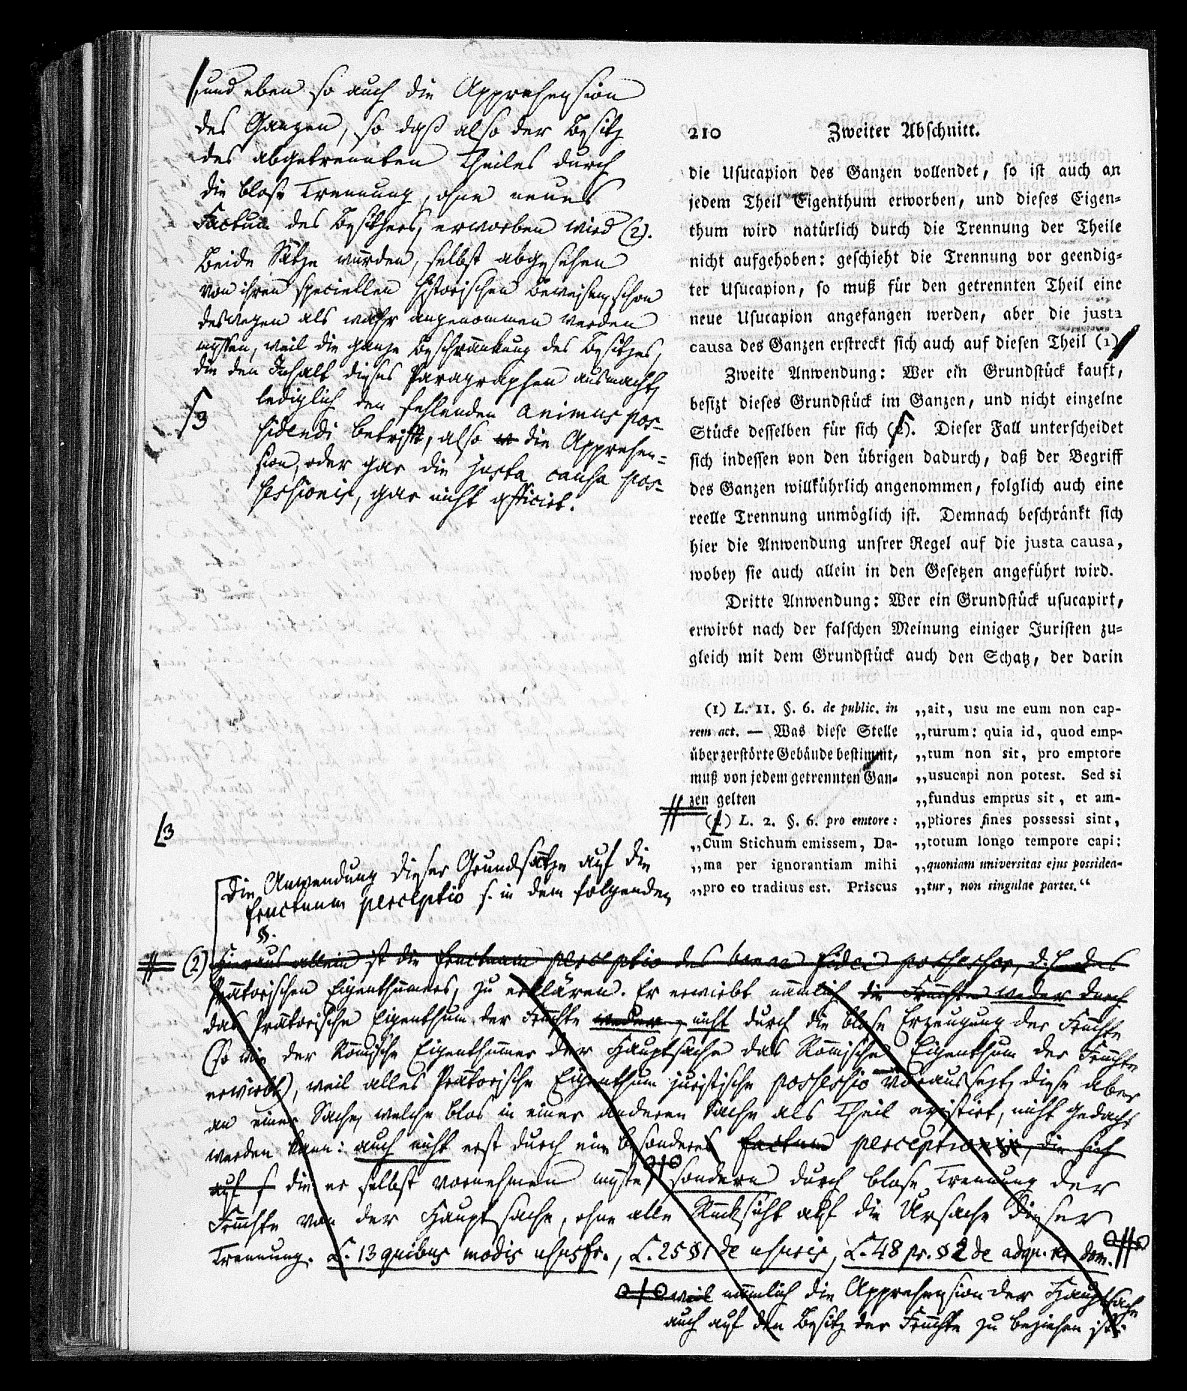 und eben so auch die Apprehension
des Ganzen, so daß also der Besitz
des abgetrennten Theiles durch
die bloße Trennung, ohne neues
Factum des Besitzers, erworben wird (2).
Beide Sätze würden, selbst abgesehen
von ihren speciellen historischen Beweisen, schon
deswegen als wahr angenommen werden
müssen, weil die ganze Beschränkung des Besitzes,
die den Inhalt dieses Paragraphen ausmacht,
3 lediglich den fehlenden animus pos-
sidendi betrifft, also die Apprehen-
sion, oder gar die justa causa pos-
sessionis, gar nicht afficirt.
210 Zweiter Abschnitt.
die Usucapion des Ganzen vollendet, so ist auch an
jedem Theil Eigenthum erworben, und dieses Eigen-
thum wird natürlich durch die Trennung der Theile
nicht aufgehoben: geschieht die Trennung vor geendig-
ter Usucapion, so muß für den getrennten Theil eine
neue Usucapion angefangen werden, aber die justa
causa des Ganzen erstreckt sich auch auf diesen Theil (1)
Zweite Anwendung: Wer ein Grundstück kauft,
besizt dieses Grundstück im Ganzen, und nicht einzelne
Stücke desselben für sich (2). Dieser Fall unterscheidet
sich indessen von den übrigen dadurch, daß der Begriff
des Ganzen willkührlich angenommen, folglich auch eine
reelle Trennung unmöglich ist. Demnach beschränkt sich
hier die Anwendung unsrer Regel auf die justa causa,
wobey sie auch allein in den Gesetzen angeführt wird.
Dritte Anwendung: Wer ein Grundstück usucapirt,
erwirbt nach der falschen Meinung einiger Juristen zu-
gleich mit dem Grundstück auch den Schatz, der darin
(1) L. 11. §. 6. de public. in
rem act. — Was diese Stelle
über zerstörte Gebäude bestimmt,
muß von jedem getrennten Gan-
zen gelten
(2) L. 2. §. 6. pro emtore:
„Cum Stichum emissem, Da-
„ma per ignorantiam mihi
„pro eo traditus est. Priscus
„ait, usu me eum non cap-
„turum: quia id, quod emp-
„tum non sit, pro emptore
„usucapi non potest. Sed si
„fundus emptus sit, et am-
„ptiores fines possessi sint,
„totum longo tempore capi:
„quoniam universitas ejus possidea-
„tur, non singulae partes.“
3
Die Anwendung dieser Grundsätze auf die
fructuum perceptio s. in dem folgenden
§.
(2) Hieraus allein ist die fructuum perceptio des bonae fidei possessor, d. h. des
Prätorischen Eigenthümers, zu erklären. Er erwirbt nämlich die Früchte weder durch
das Prätorische Eigenthum der Früchte weder nicht durch die bloße Erzeugung der Früchte
(so wie der Römische Eigenthümer der Hauptsache das Römische Eigenthum der Früchte
erwirbt), weil alles Prätorische Eigenthum juristische possessio voraussezt, diese aber
an einer Sache, welche blos in einer anderen Sache als Theil existirt, nicht gedacht
werden kann: auch nicht erst durch ein besonderes factum perceptionis, die sich
auf die er selbst vornehmen müste, sondern durch bloße Trennung der
Früchte von der Hauptsache, ohne alle Rücksicht auf die Ursache dieser
Trennung. L. 13 quibus modis ususfr., L. 25 §1 de usuris, L. 48 pr. §2 de adqu. re. dom.
weil nämlich die Apprehension der Hauptsache
auch auf den Besitz der Früchte zu beziehen ist.